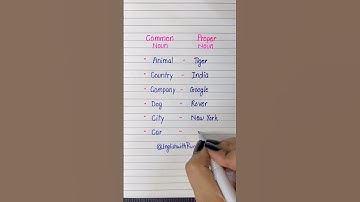 Common Noun Proper Noun
- Animal - Tiger
- Country - India
- Company - Google
- Dog - Rover
- City - New York
- Car -